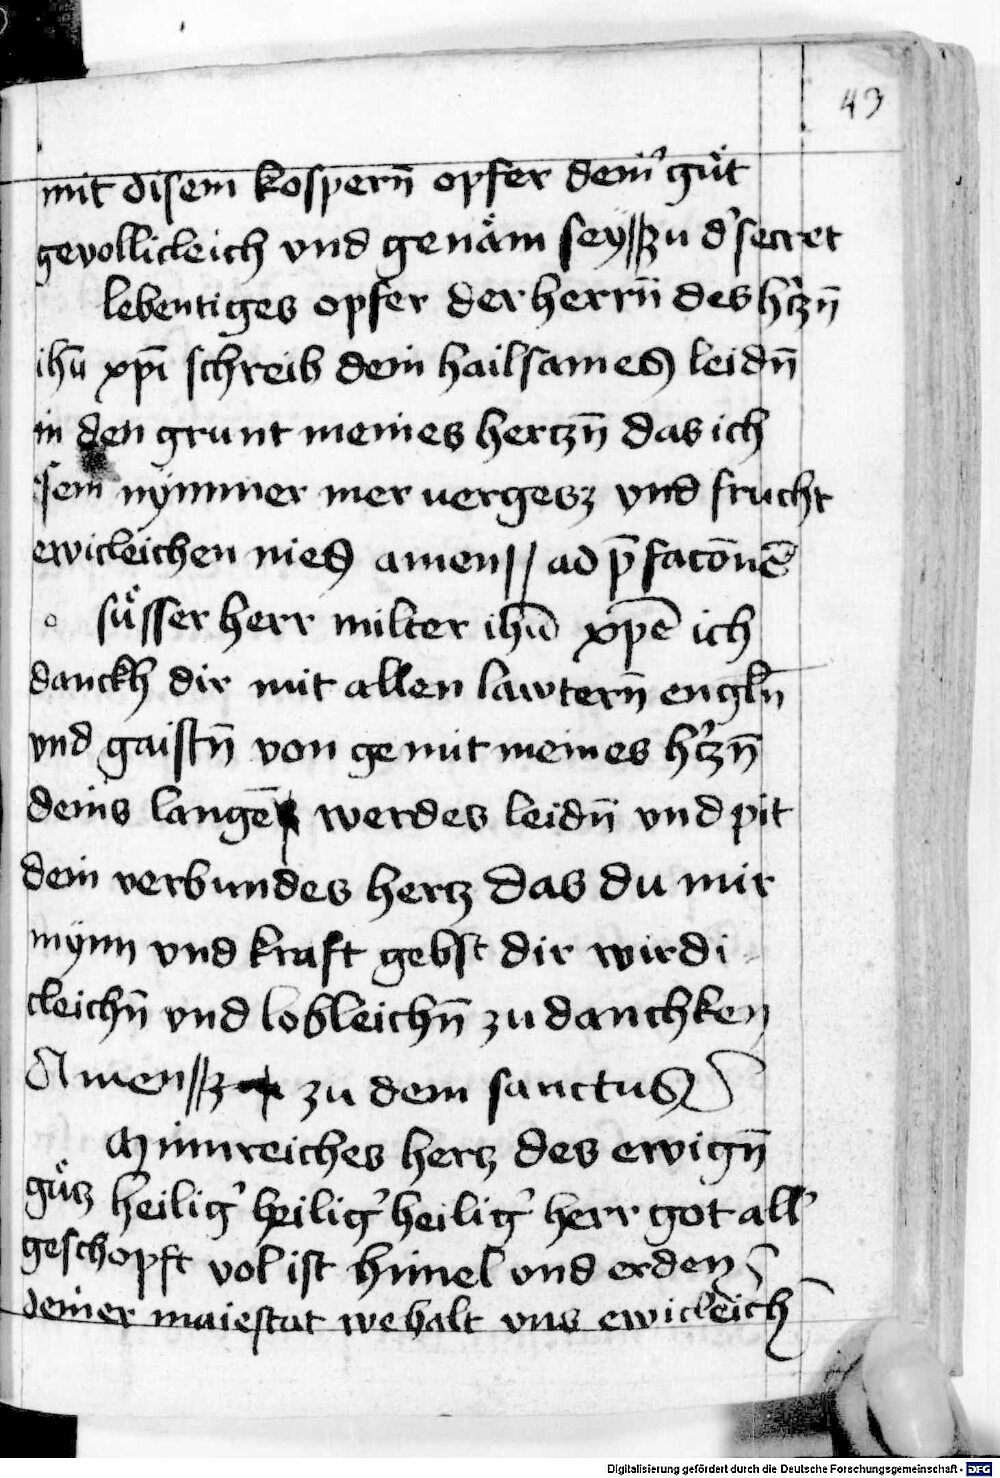 43
mit disem kosperñ opfer dein̉ gut̎
gevollicleich vnd genäm sey // zu d̉ secret
lebentiges opfer der herrn̄ des hr̉czn̄
ihū xp̄i schreib dein hailsames leidn̄
in den grunt meines herczn̄ das ich
sein nÿmmer mer uergesz vnd frucht
ewicleichen nies amen // ad p̄facōnē
süsser herr milter ihū xp̄e ich
danckh dir mit allen lawtern̄ engln̄
vnd gaistn̄ von gemüt meines hr̉czn̄
deins langē werdes leidn̄ vnd pit
dein verbundes hercz das du mir
mÿnn vnd kraft gebst dir wirdi
cleichn̄ vnd lobleichn̄ zu danchken
Amen // zu dem sanctus
Minnreiches hercz des ewign̄
güz heilig̉ heilig̉ heilig̉ herr got all̉
geschopft vol ist himel vnd erden
deiner maiestat wehalt vns ewicleich
Digitalisierung gefördert durch die Deutsche Forschungsgemeinschaft - DFG